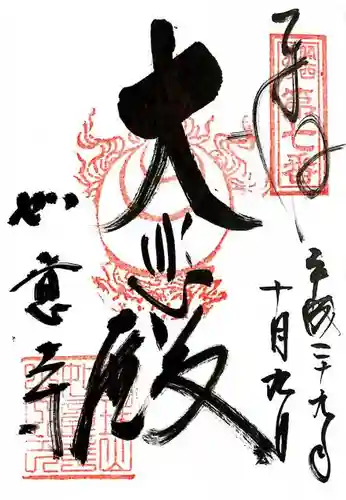 奉拝
第七番
平成二十九年
十月九日
大悲殿
如意寺